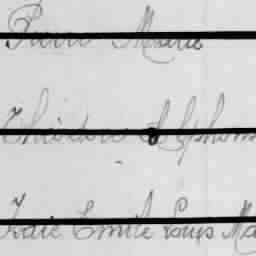 Pierre Marie
Théodore Alphons
Marie Emile Louis Ma